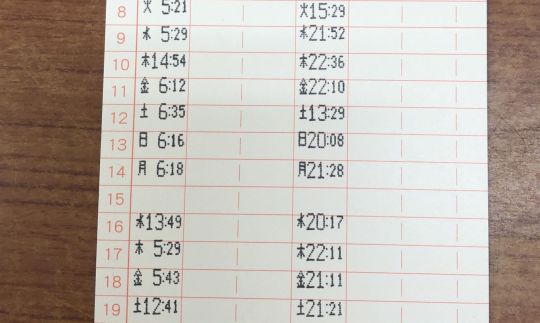 8 火 5:21 火15:29
9 水 5:29 水21:52
10 木14:54 木22:36
11 金 6:12 金22:10
12 土 6:35 土13:29
13 日 6:16 日20:08
14 月 6:18 月21:28
15
16 水13:49 水20:17
17 木 5:29 木22:11
18 金 5:43 金21:11
19 土12:41 土21:21